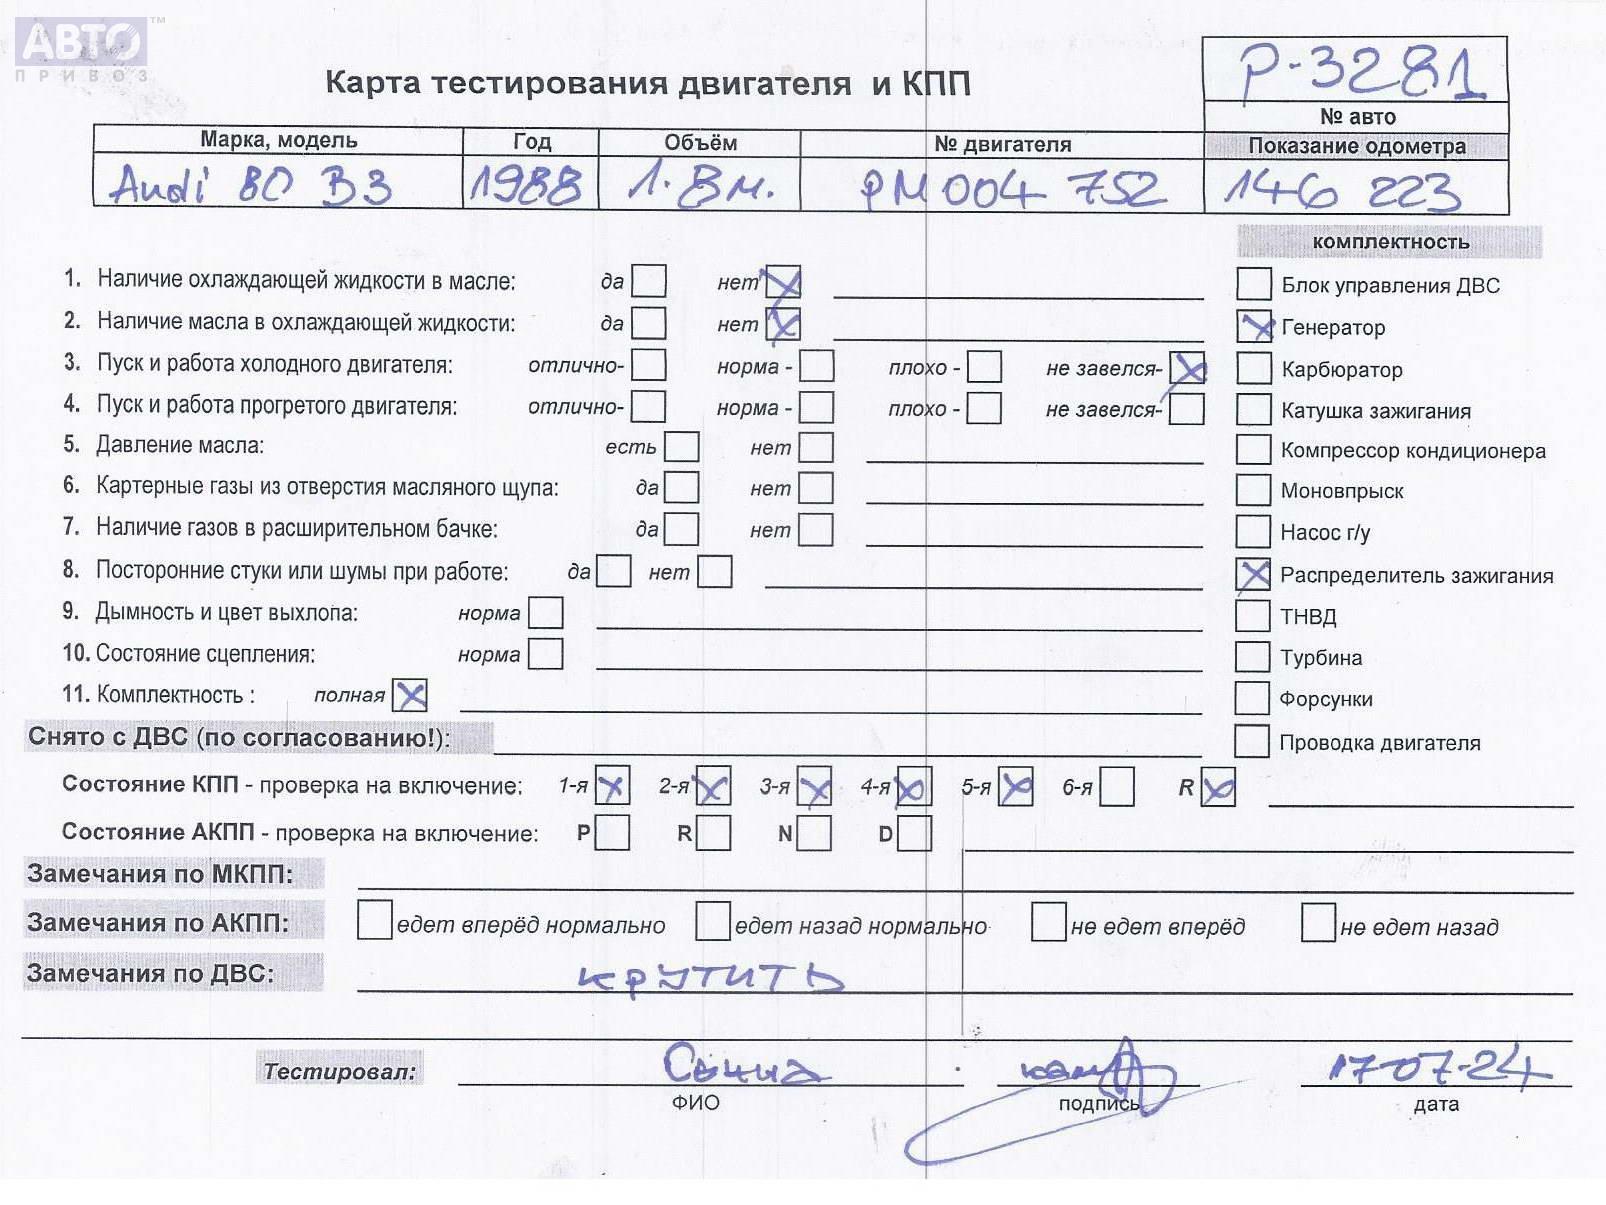 АВТО ™
ПРИВОЗ
Р-3281
Карта тестирования двигателя и КПП
№ авто
Марка, модель Год Объём № двигателя Показание одометра
Audi 80 B3 1988 1.8 м. РМ 004 752 146 223
комплектность
1. Наличие охлаждающей жидкости в масле: да нет
Блок управления ДВС
2. Наличие масла в охлаждающей жидкости: да нет
Генератор
3. Пуск и работа холодного двигателя: отлично- норма - плохо - не завелся-
Карбюратор
4. Пуск и работа прогретого двигателя: отлично- норма - плохо - не завелся-
Катушка зажигания
5. Давление масла: есть нет
Компрессор кондиционера
6. Картерные газы из отверстия масляного щупа: да нет
Моновпрыск
7. Наличие газов в расширительном бачке: да нет
Насос г/у
8. Посторонние стуки или шумы при работе: да нет
Распределитель зажигания
9. Дымность и цвет выхлопа: норма
ТНВД
10. Состояние сцепления: норма
Турбина
11. Комплектность : полная
Форсунки
Снято с ДВС (по согласованию!):
Проводка двигателя
Состояние КПП - проверка на включение: 1-я 2-я 3-я 4-я 5-я 6-я R
Состояние АКПП - проверка на включение: P R N D
Замечания по МКПП:
Замечания по АКПП: едет вперёд нормально едет назад нормально не едет вперёд не едет назад
Замечания по ДВС: крутить
Тестировал: 17-07-24
ФИО подпись дата